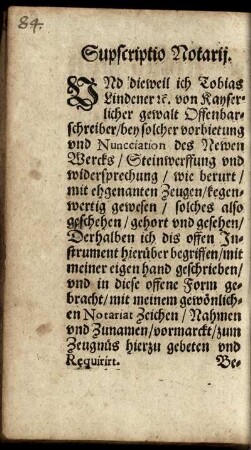 84.
Supscriptio Notarij.
VNd dieweil ich Tobias
Lindener ꝛc. von Kayser⸗
licher gewalt Offenbar⸗
schreiber/bey solcher vorbietung
vnd Nuncciation des Newen
Wercks/ Steinwerffung vnd
widersprechung / wie berurt/
mit ehgenanten Zeugen/kegen⸗
wertig gewesen / solches also
geschehen / gehort vnd gesehen/
Derhalben ich dis offen In⸗
strument hierüber begriffen/mit
meiner eigen hand geschrieben/
vnd in diese offene Form ge⸗
bracht/mit meinem gewönlich⸗
en Notariat Zeichen / Nahmen
vnd Zunamen/vormarckt/zum
Zeugnüs hierzu gebeten vnd
Requirirt.
Be⸗